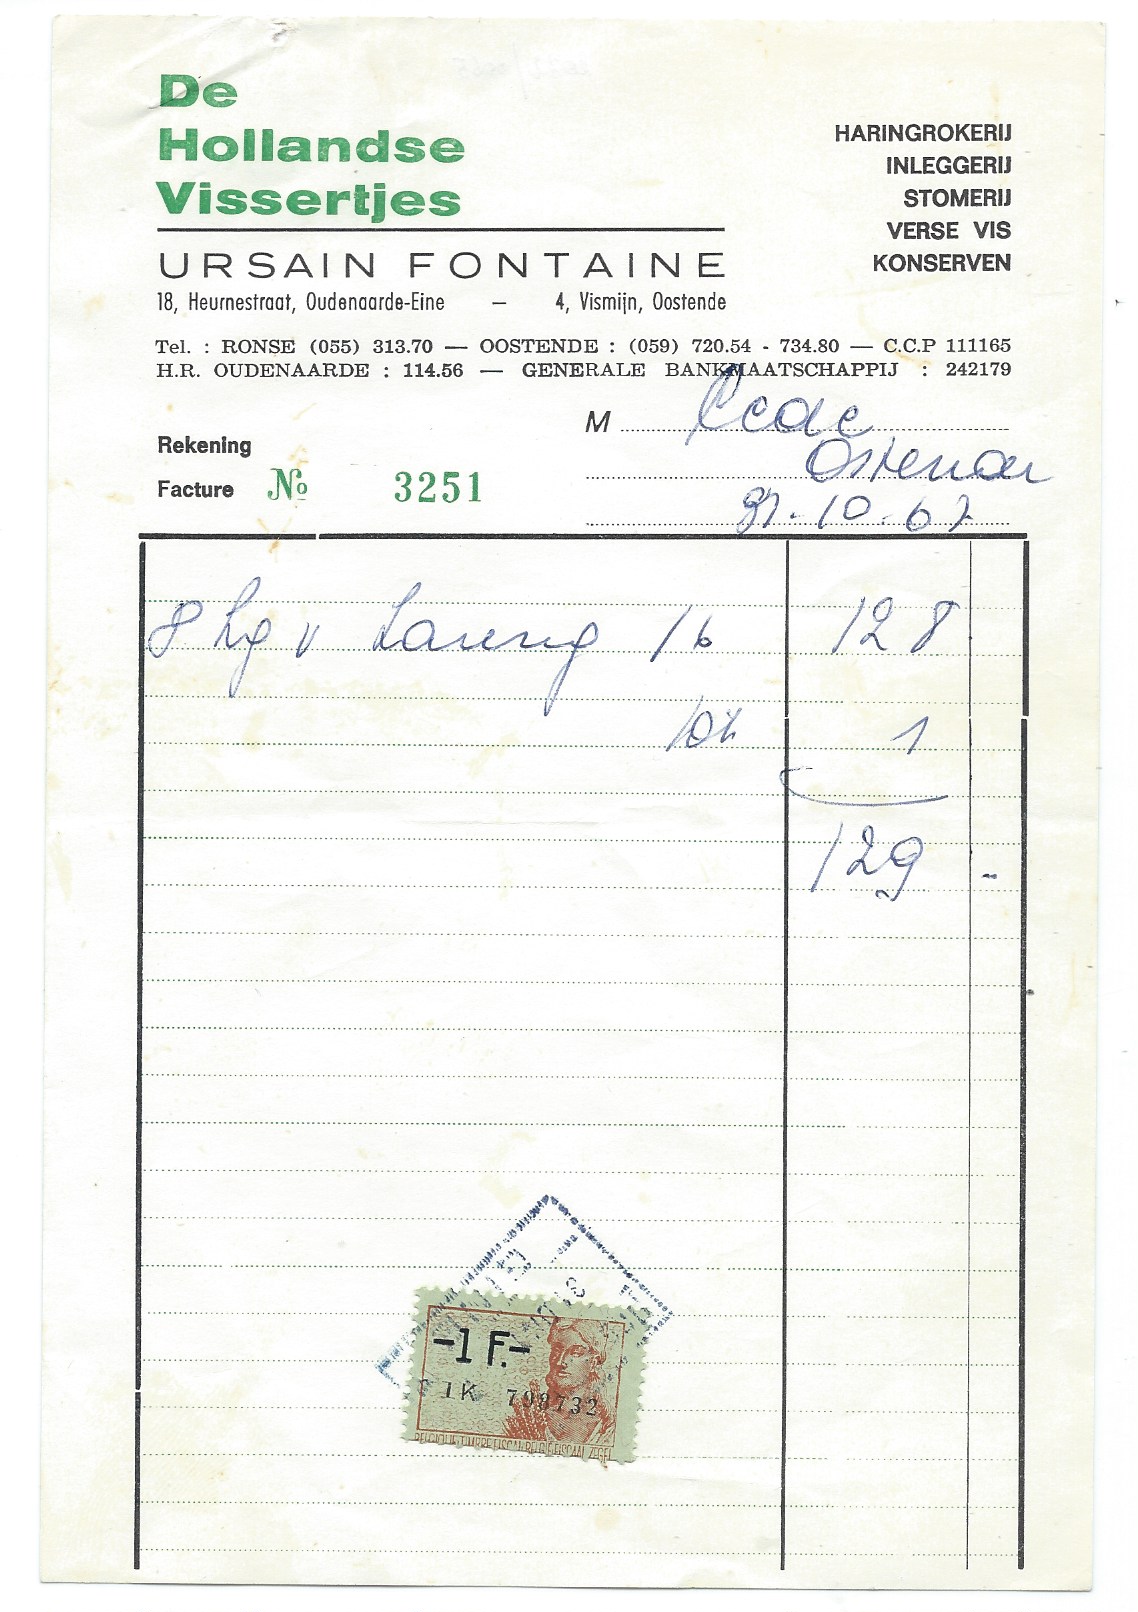 De
Hollandse
Vissertjes
URSAIN FONTAINE
18, Heurnestraat, Oudenaarde-Eine — 4, Vismijn, Oostende
HARINGROKERIJ
INLEGGERIJ
STOMERIJ
VERSE VIS
KONSERVEN
Tel. : RONSE (055) 313.70 — OOSTENDE : (059) 720.54 - 734.80 — C.C.P 111165
H.R. OUDENAARDE : 114.56 — GENERALE BANKMAATSCHAPPIJ : 242179
M
Rekening
Facture No 3251
-10-67
8 kg v 16 128
1
129 -
-1 F.-
1K 798732
BELGIQUE-TIMBRE FISCAL-BELGIË-FISCAAL ZEGEL